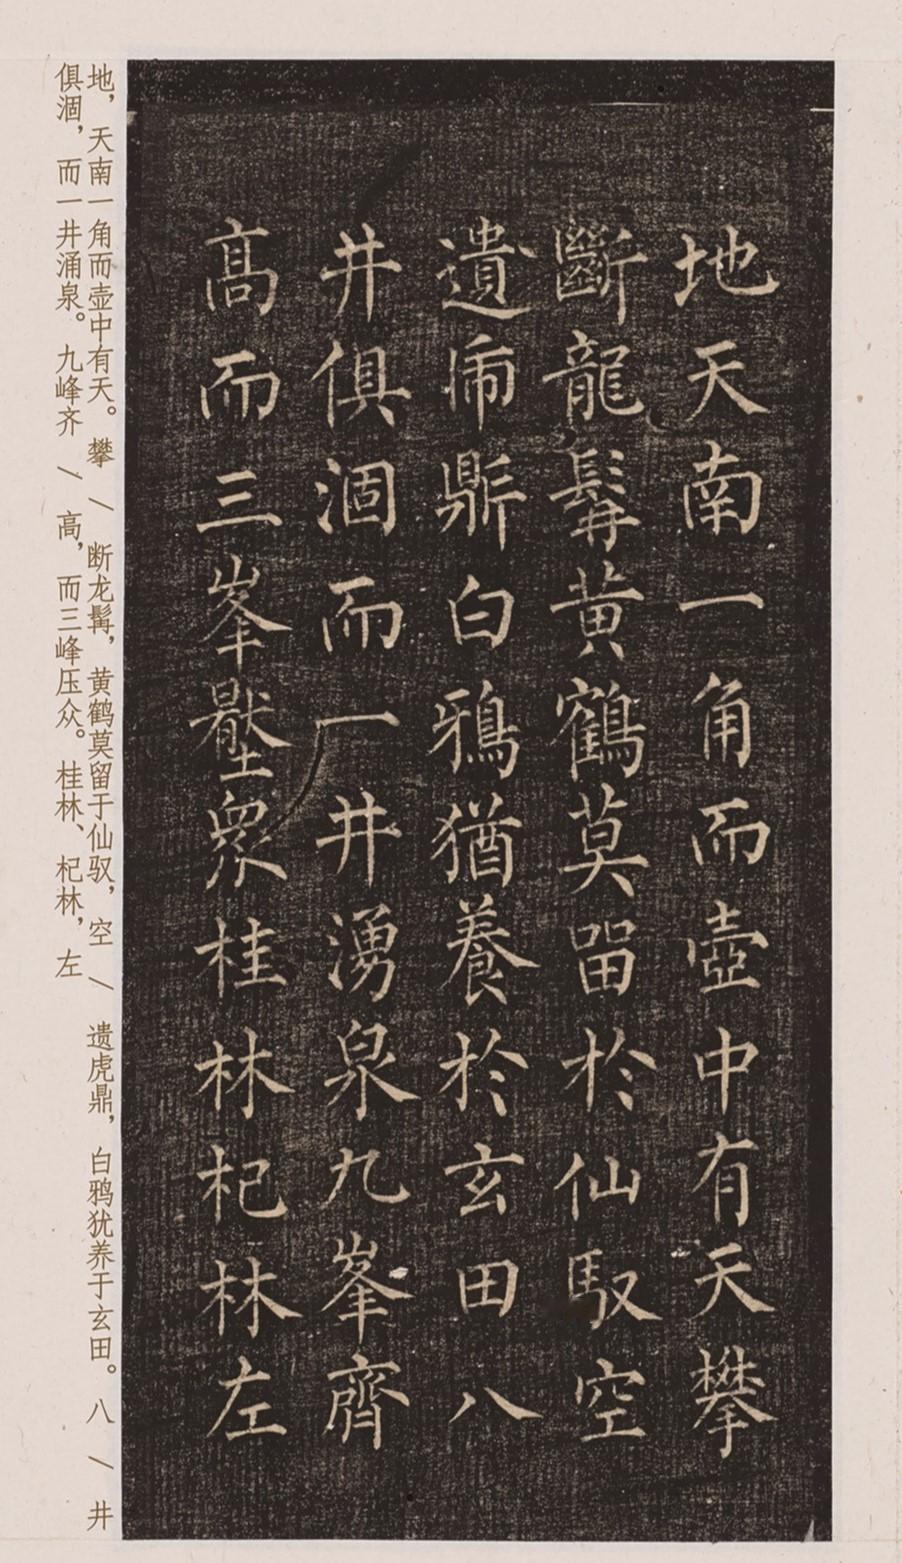 地天南一角而壺中有天攀
斷龍髯黃鶴莫留於仙馭空
遺乕鼎白鴉猶養於玄田八
井俱涸而一井湧泉九峯齊
髙而三峯壓眾桂林杞林左
地，天南一角而壶中有天。攀 / 断龙髯，黄鹤莫留于仙驭，空 / 遗虎鼎，白鸦犹养于玄田。八 / 井
俱涸，而一井涌泉。九峰齐 / 高，而三峰压众。桂林、杞林，左